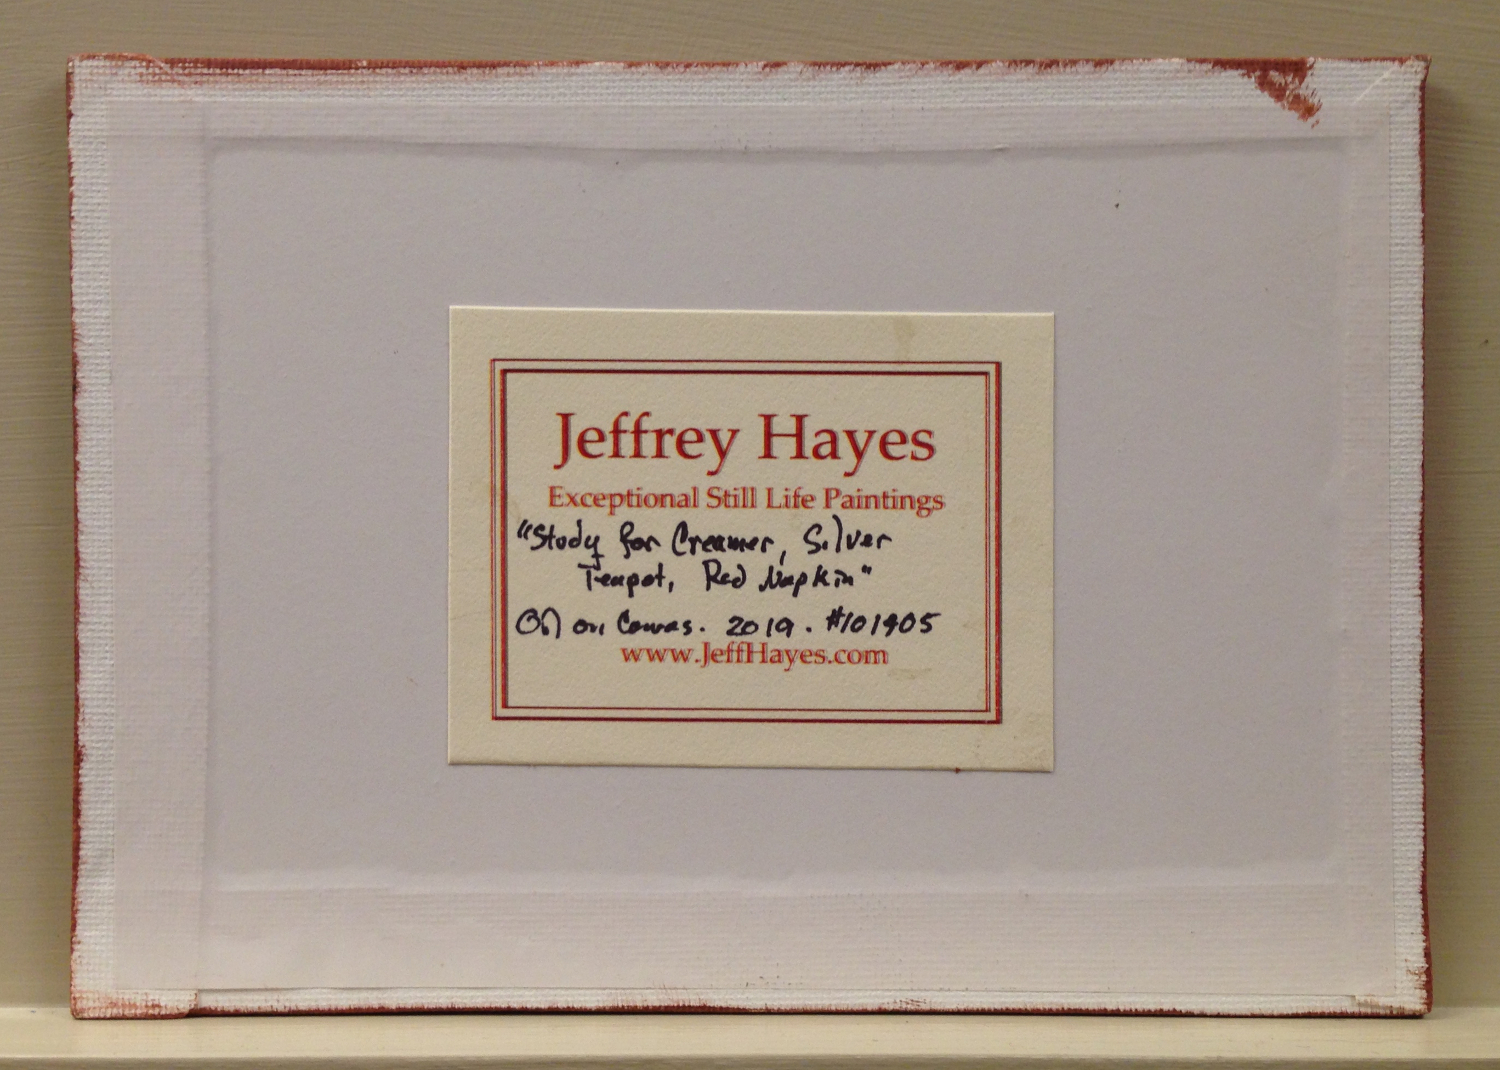 Jeffrey Hayes
Exceptional Still Life Paintings
"Study for Creamer, Silver
Teapot, Red Napkin"
Oil on Canvas. 2019. #101905
www.JeffHayes.com